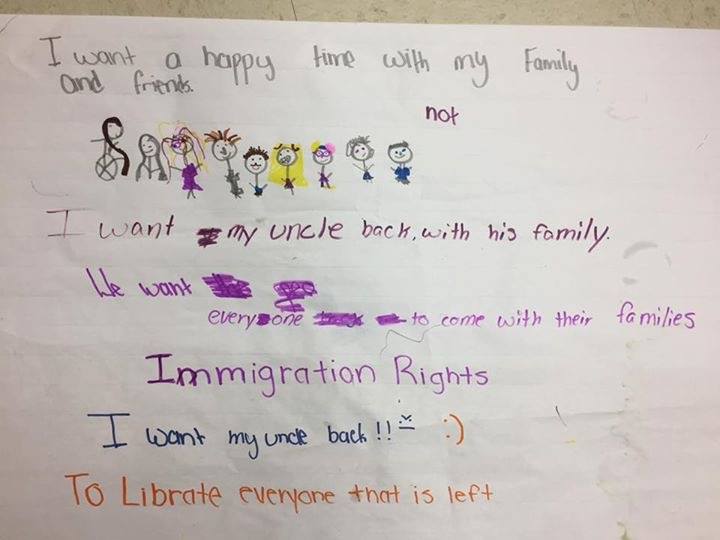 I want a happy time with my Family
and friends.
not
I want my uncle back, with his family.
We want
everyone to come with their families
Immigration Rights
I want my uncle back !! :)
To Librate everyone that is left